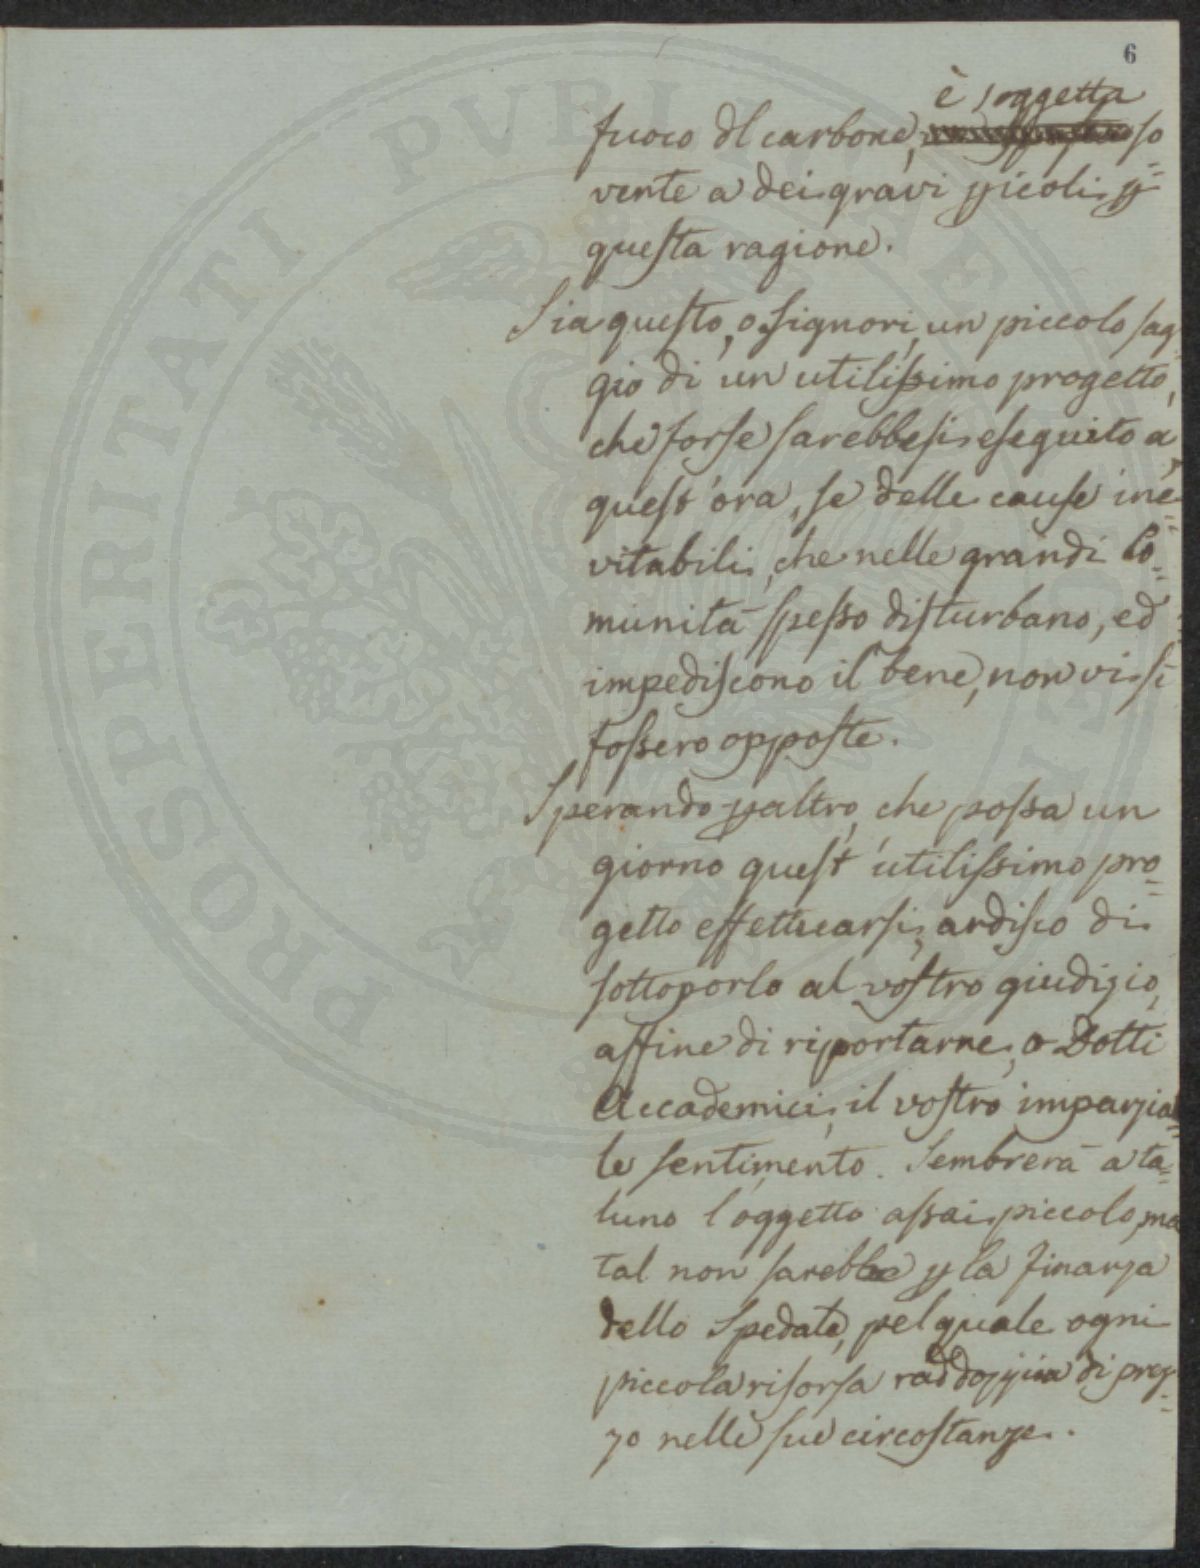 6
è soggetta
fuoco dl carbone, so=
vente a dei gravi picoli p
questa ragione.
Sia questo, o Signori, un piccolo sag=
gio di un utilissimo progetto,
che forse sarebbesi eseguito a
quest'ora, se delle cause ine=
vitabili, che nelle grandi Co=
munità spesso disturbano, ed
impediscono il bene, non vi si
fossero opposte.
Sperando paltro, che possa un
giorno quest'utilissimo pro=
getto effettuarsi, ardisco di
sottoporlo al vostro giudizio,
affine di riportarne, o Dotti
Accademici, il vostro imparzia=
le sentimento. Sembrerà a ta=
luno l'oggetto assai piccolo, ma
tal non sarebbe p la Finanza
dello Spedale, pel quale ogni
piccola risorsa raddoppia di prez=
zo nelle sue circostanze.
PROSPERITATI PVBLICAE